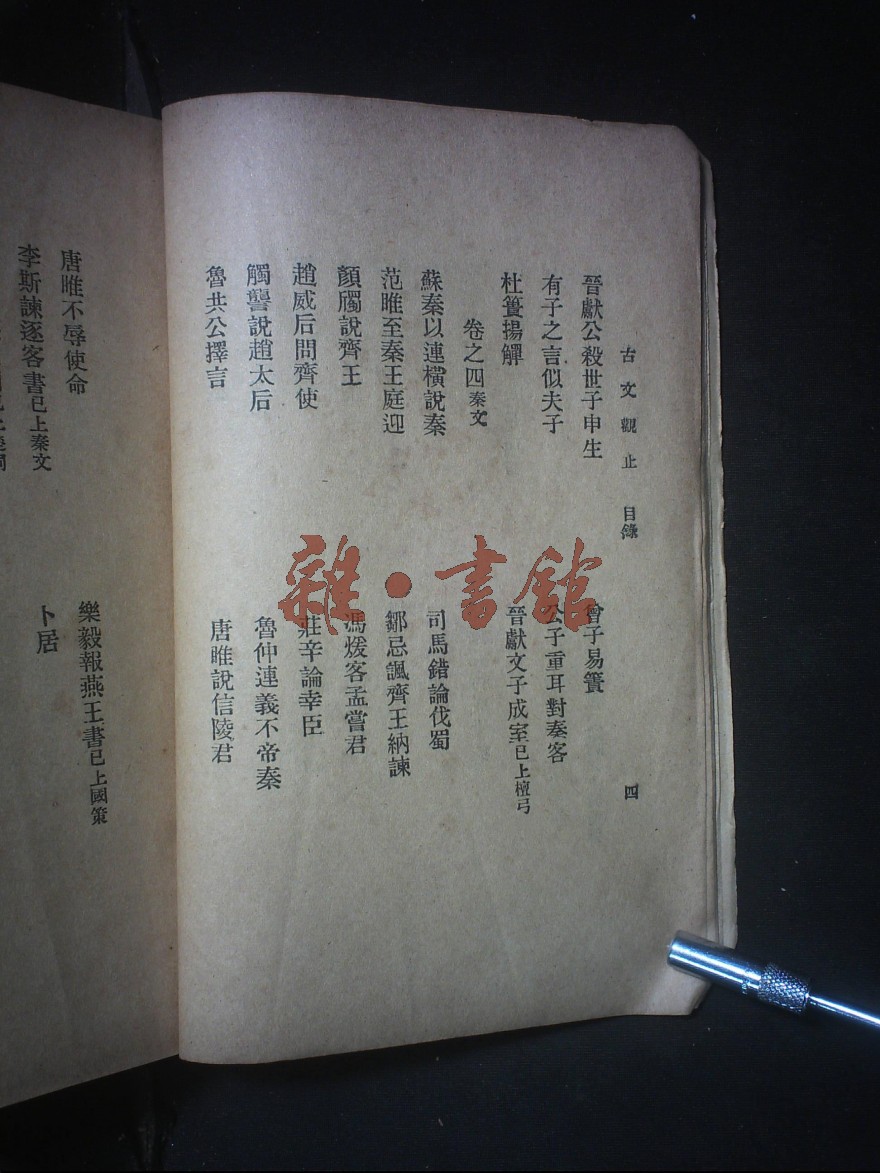 古文觀止 目錄 四
晉獻公殺世子申生
曾子易簀
有子之言似夫子
公子重耳對秦客
杜簣揚觶
晉獻文子成室已上檀弓
卷之四秦文
蘇秦以連橫說秦
司馬錯論伐蜀
范睢至秦王庭迎
鄒忌諷齊王納諫
顏斶說齊王
馮煖客孟嘗君
趙威后問齊使
莊辛論幸臣
觸讋說趙太后
魯仲連義不帝秦
魯共公擇言
唐睢說信陵君
唐睢不辱使命
樂毅報燕王書已上國策
李斯諫逐客書已上秦文
卜居
雜·書館